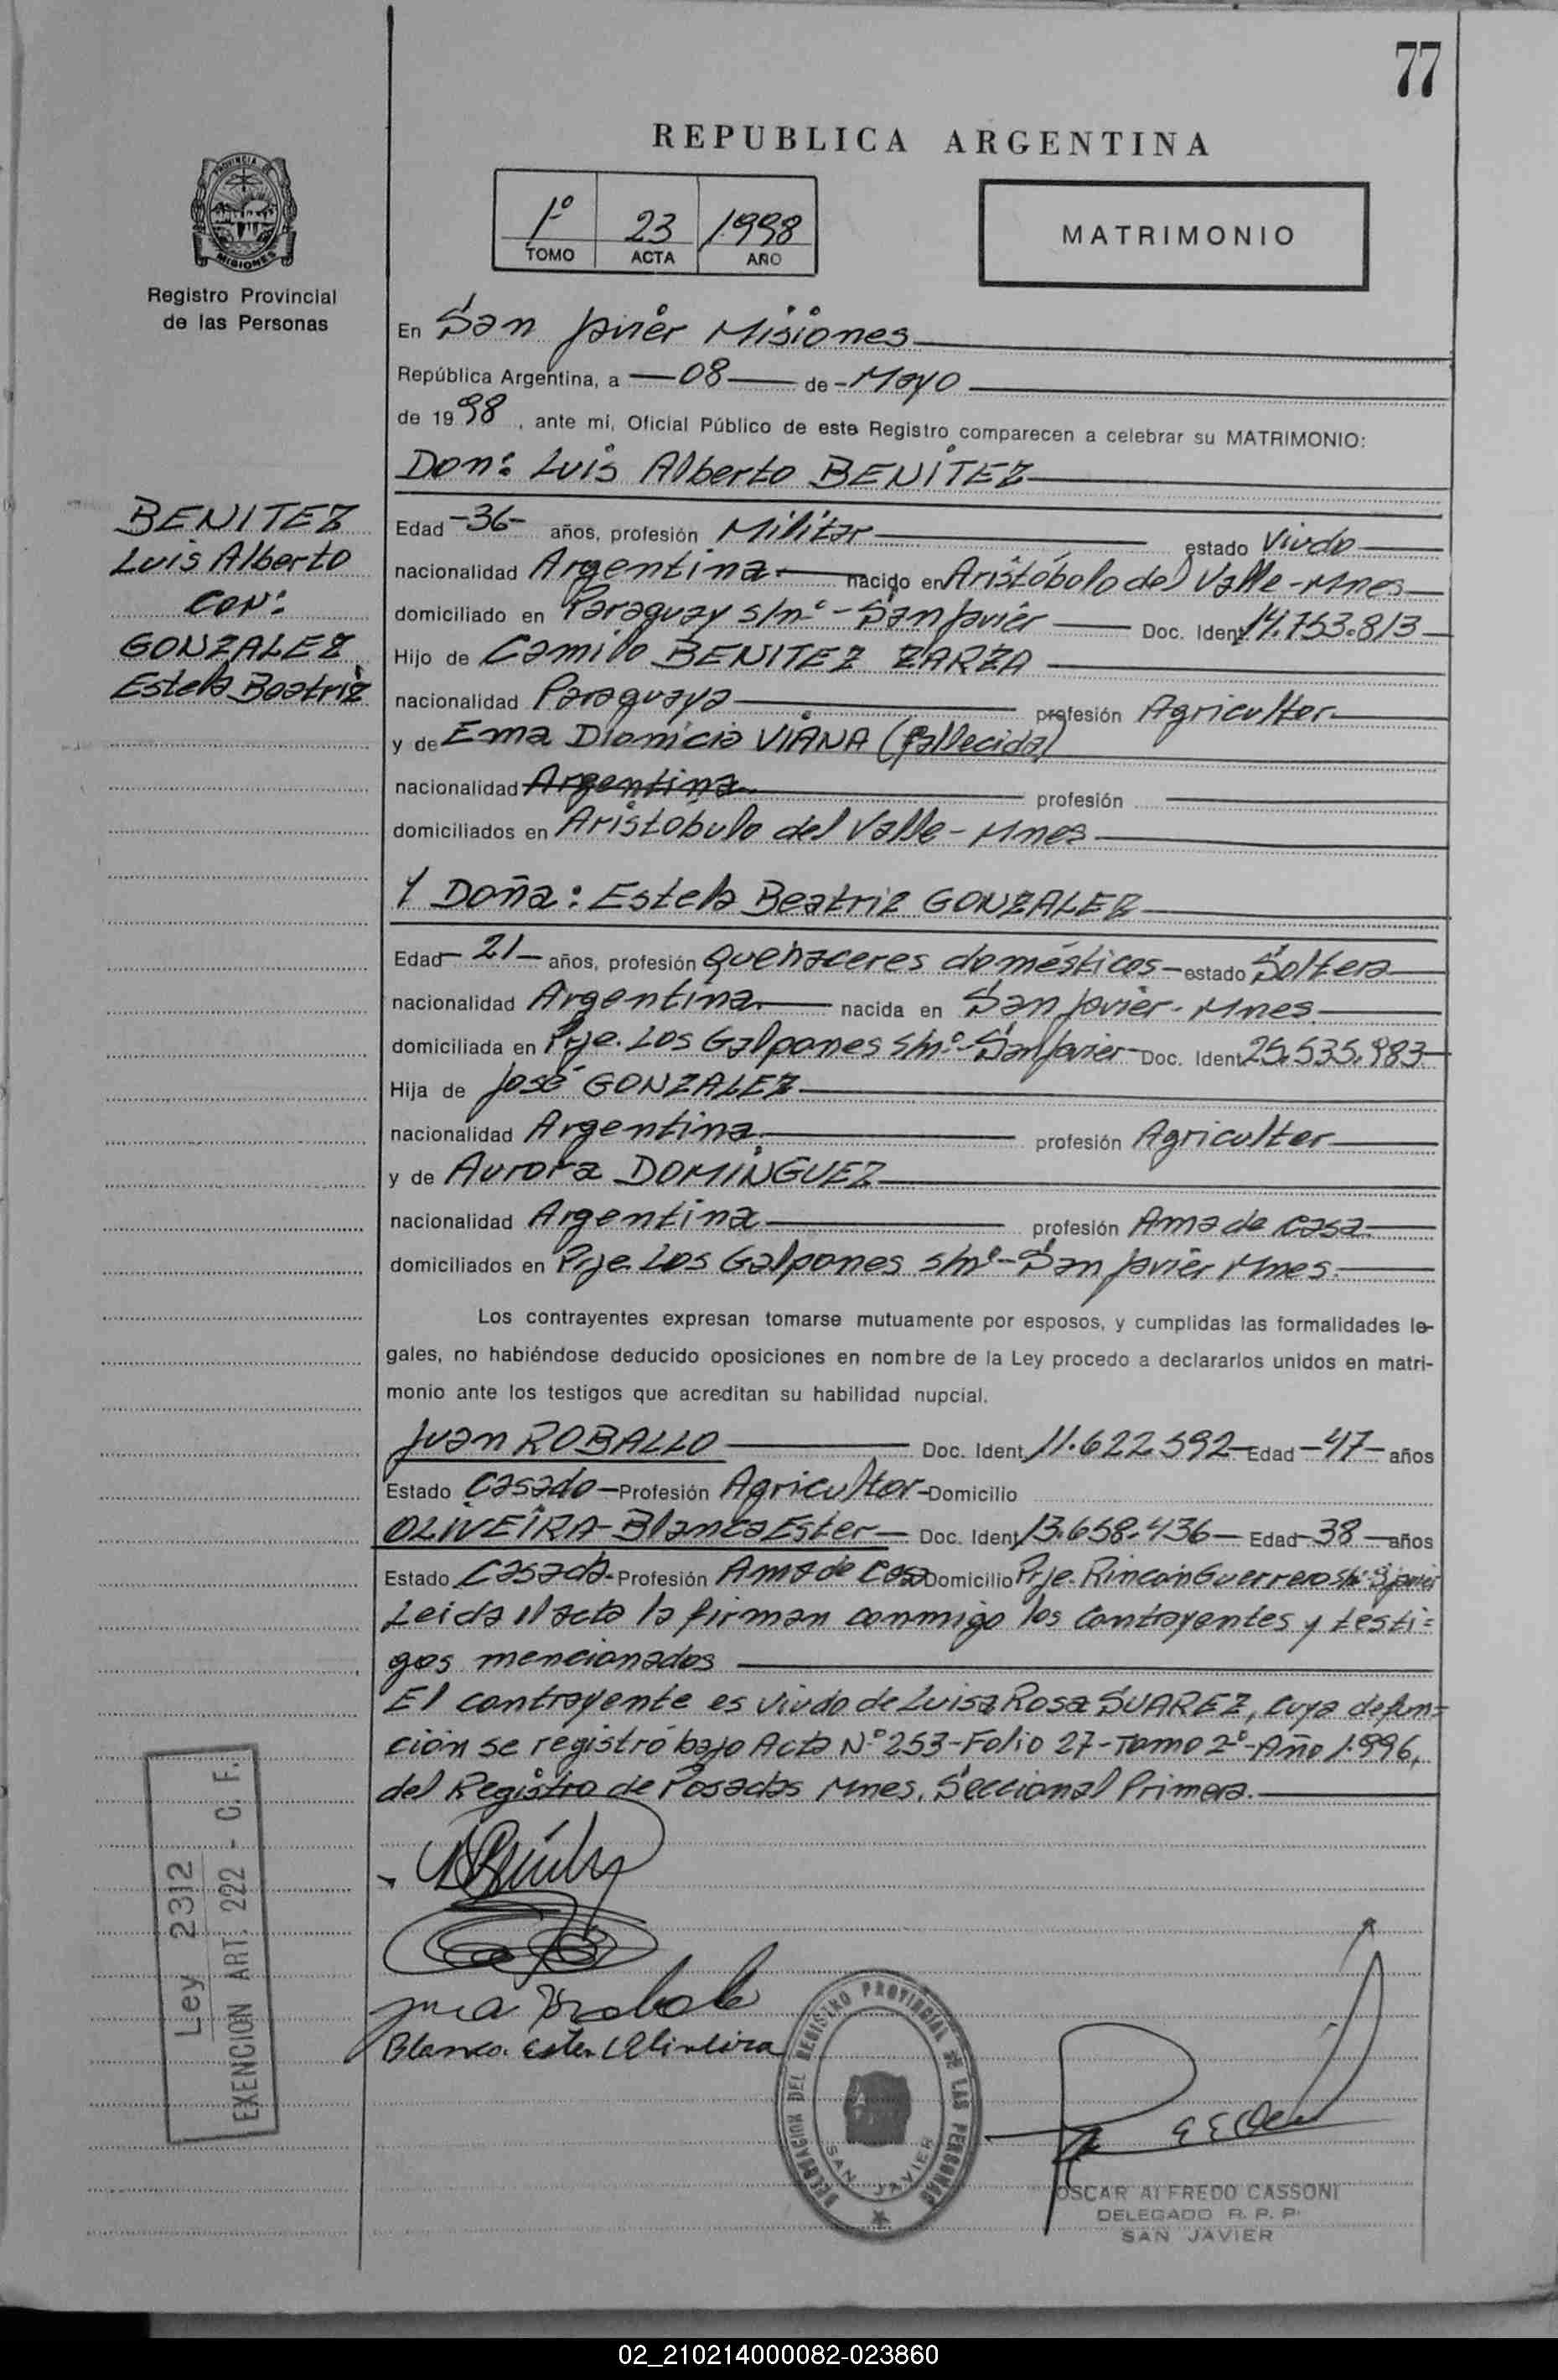 77
REPUBLICA ARGENTINA
PROVINCIA DE
MISIONES
Registro Provincial
de las Personas
1º 23 1998
TOMO ACTA AÑO
MATRIMONIO
En San Javier Misiones
República Argentina, a —08— de - Mayo
de 1998, ante mi, Oficial Público de este Registro comparecen a celebrar su MATRIMONIO:
Don: Luis Alberto BENITEZ
BENITEZ
Luis Alberto
CON:
GONZALEZ
Estela Beatriz
Edad -36- años, profesión Militar estado Viudo
nacionalidad Argentina nacido en Aristóbolo del Valle-Mnes
domiciliado en Paraguay s/nº-San Javier Doc. Ident 14.753.813
Hijo de Camilo BENITEZ ZARZA
nacionalidad Paraguaya profesión Agricultor
y de Ema Dionicia VIANA (fallecida)
nacionalidad Argentina profesión
domiciliados en Aristobulo del Valle - Mnes
Y Doña: Estela Beatriz GONZALEZ
Edad - 21 - años, profesión Quehaceres domésticos - estado Soltera
nacionalidad Argentina nacida en San Javier - Mnes.
domiciliada en Pje. Los Galpones s/nº-San Javier - Doc. Ident 25.535.983
Hija de José GONZALEZ
nacionalidad Argentina profesión Agricultor
y de Aurora DOMINGUEZ
nacionalidad Argentina profesión Ama de casa
domiciliados en Pje. Los Galpones s/nº-San Javier Mnes.
Los contrayentes expresan tomarse mutuamente por esposos, y cumplidas las formalidades le-
gales, no habiéndose deducido oposiciones en nombre de la Ley procedo a declararlos unidos en matri-
monio ante los testigos que acreditan su habilidad nupcial.
Juan ROBALLO Doc. Ident. 11.622.592 - Edad -47- años
Estado Casado - Profesión Agricultor - Domicilio
OLIVEIRA Blanca Ester - Doc. Ident 13.658.436 - Edad - 38 - años
Estado Casada - Profesión Ama de Casa Domicilio Pje. Rincón Guerrero s/nº S. Javier
Leida el acta la firman conmigo los Contrayentes y testi=
gos mencionados
El contrayente es viudo de Luisa Rosa SUAREZ, cuya defun=
ción se registró bajo Acta Nº 253-Folio 27-Tomo 2º-Año 1.996,
del Registro de Posadas Mnes. Seccional Primera.
Ley 2312
EXENCION ART. 222 - C. F.
Blanca Ester Oliveira
DELEGACION DEL REGISTRO PROVINCIAL DE LAS PERSONAS
SAN JAVIER
OSCAR ALFREDO CASSONI
DELEGADO R. P. P.
SAN JAVIER
02_210214000082-023860